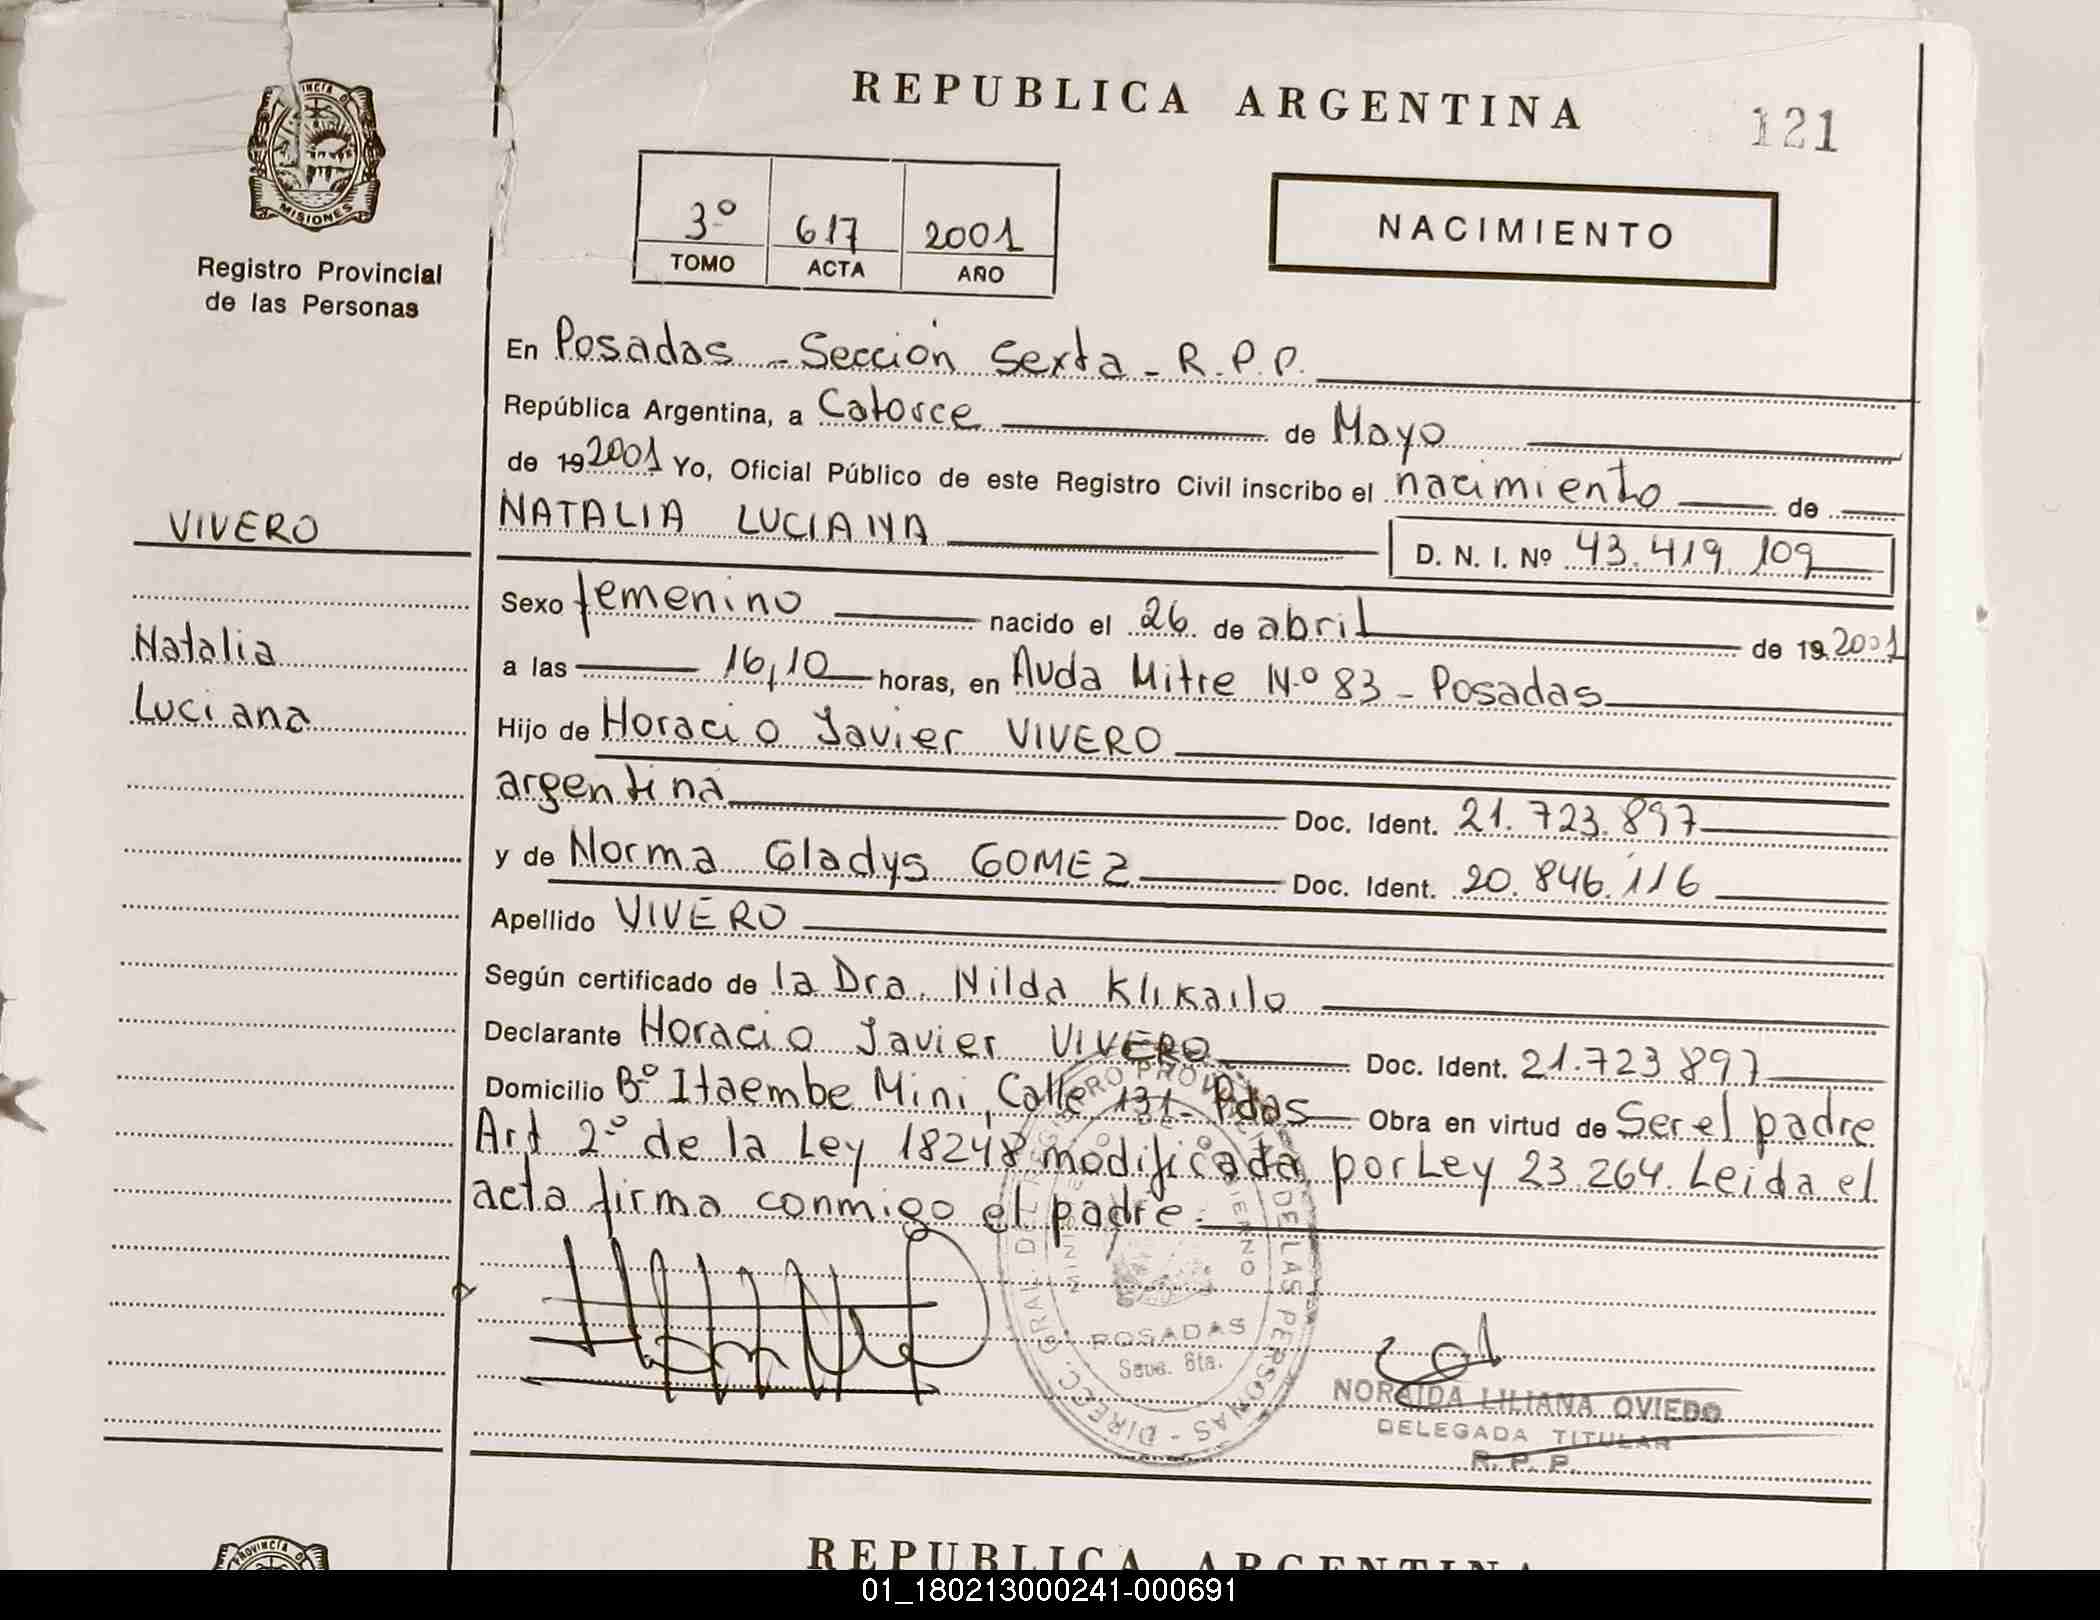 REPUBLICA ARGENTINA
121
PROVINCIA DE
MISIONES
Registro Provincial
de las Personas
3º 617 2001
TOMO ACTA AÑO
NACIMIENTO
En Posadas - Sección Sexta - R.P.P.
República Argentina, a Catorce de Mayo
de 192001 Yo, Oficial Público de este Registro Civil inscribo el nacimiento de
VIVERO
NATALIA LUCIANA
D. N. I. Nº 43.419.109
Sexo femenino nacido el 26 de abril de 192001
Natalia
a las 16,10 horas, en Avda Mitre Nº 83 - Posadas
Luciana
Hijo de Horacio Javier VIVERO
argentina Doc. Ident. 21.723.897
y de Norma Gladys GOMEZ Doc. Ident. 20.846.116
Apellido VIVERO
Según certificado de la Dra. Nilda Klikailo
Declarante Horacio Javier VIVERO Doc. Ident. 21.723.897
Domicilio Bº Itaembe Mini, Calle 131 - Pdas Obra en virtud de Ser el padre
Art 2º de la Ley 18248 modificada por Ley 23.264. Leida el
acta firma conmigo el padre.
DIRECC. GRAL. DEL REGISTRO PROVINCIAL DE LAS PERSONAS
POSADAS
Secc. 6ta.
NORAIDA LILIANA OVIEDO
DELEGADA TITULAR
R. P. P.
PROVINCIA D
REPUBLICA ARGENTINA
01_180213000241-000691